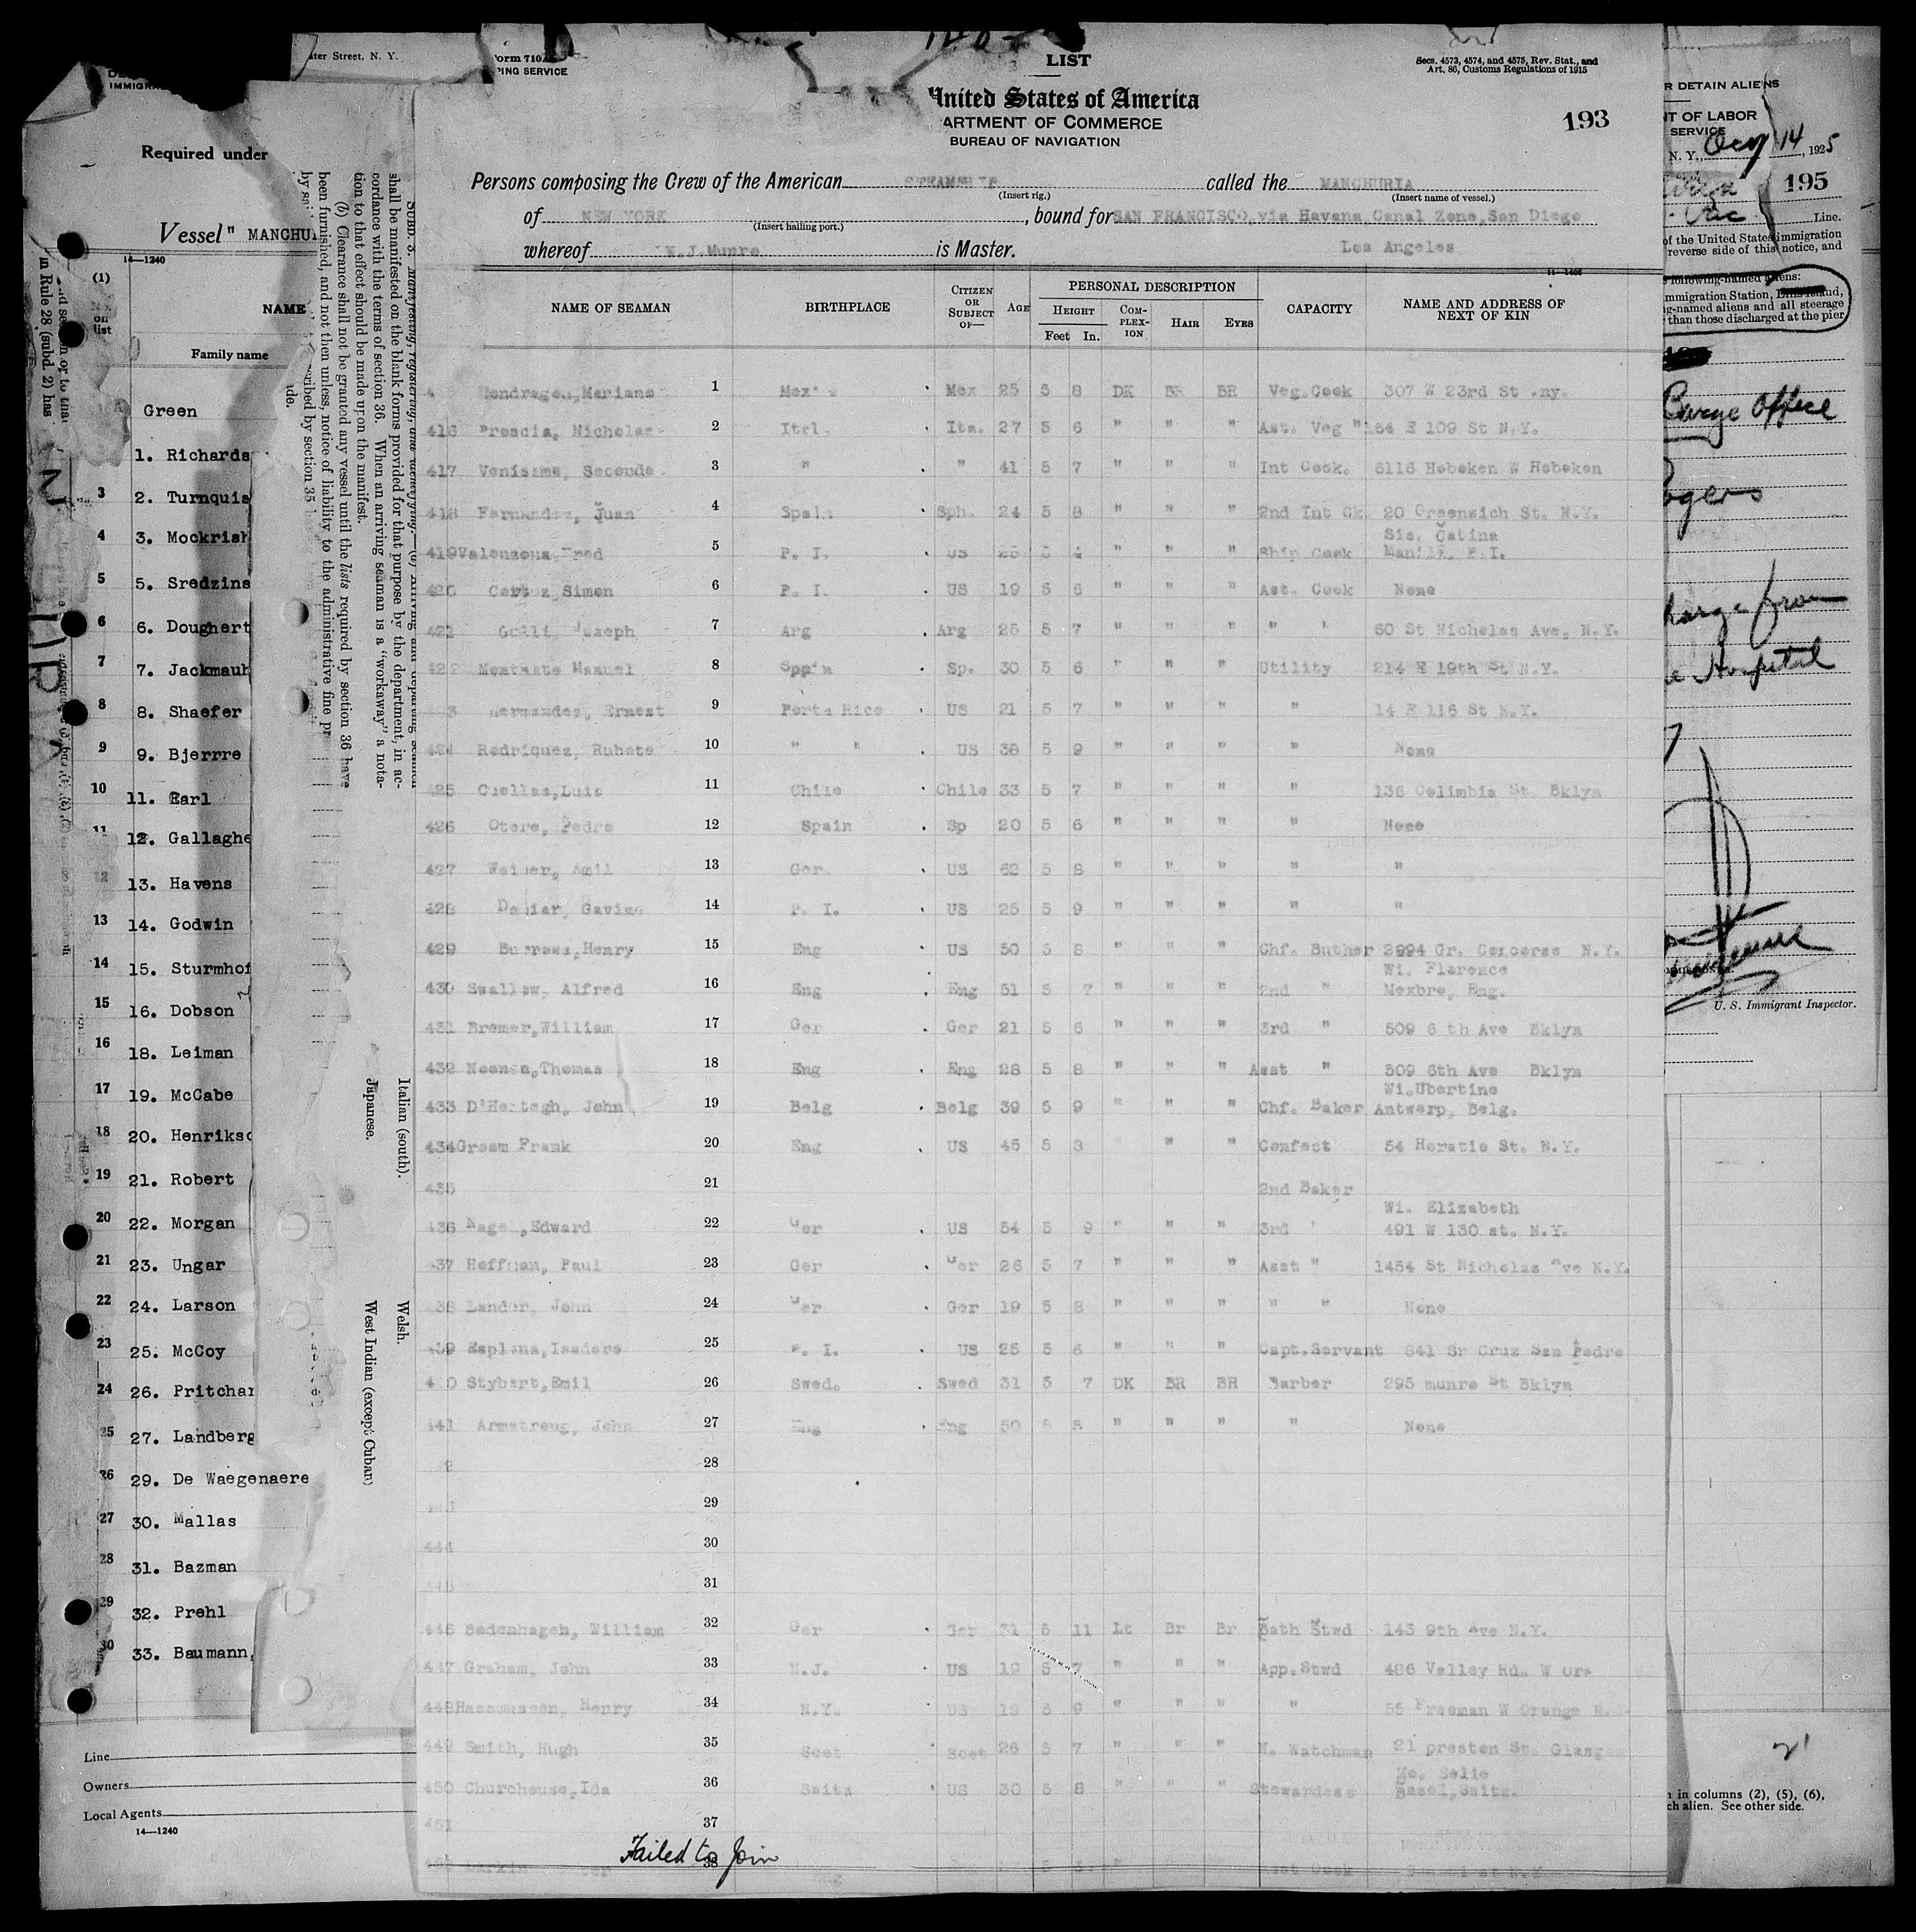 ater Street, N. Y.
Form 710
PING SERVICE
LIST
Secs. 4573, 4574, and 4575, Rev. Stat., and
Art. 86, Customs Regulations of 1915
United States of America
ARTMENT OF COMMERCE
BUREAU OF NAVIGATION
193
Persons composing the Crew of the American STEAMSHIP called the MANCHURIA
(Insert rig.) (Insert name of vessel.)
of NEW YORK, bound for SAN FRANCISCO, via Havana Canal Zone, San Diego
(Insert hailing port.)
whereof W.J.Munro is Master. Los Angeles
11-1406
NAME OF SEAMAN BIRTHPLACE CITIZEN OR SUBJECT OF— AGE PERSONAL DESCRIPTION CAPACITY NAME AND ADDRESS OF NEXT OF KIN
HEIGHT COMPLEXION HAIR EYES
Feet In.
1 Mex 25 5 8 DK BR BR Veg.Cook 307 W 23rd St .ny.
416 Proscia, Nicholas 2 Itel. Ita. 27 5 6 " " " Ast. Veg " 164 E 109 St N.Y.
417 Venisame, Seconde 3 " " 41 5 7 " " " Int Cook. 6116 Hoboken W Hoboken
418 Fernandez, Juan 4 Spain Sph. 24 5 8 " " " 2nd Int Ck 20 Greenwich St. N.Y.
Sis. Catina
419 Valenzona, Fred 5 P. I. US 25 5 4 " " " Ship Cook Manila, P.I.
420 Simon 6 P. I. US 19 5 6 " " " Ast. Cook None
421 Joseph 7 Arg Arg 25 5 7 " " " " " 60 St Nicholas Ave, N.Y.
422 Manuel 8 Spain Sp. 30 5 6 " " " Utility 214 E 19th St N.Y.
Hernandez, Ernest 9 Porto Rico US 21 5 7 " " " " 14 E 116 St N.Y.
424 Rodriquez, Rubate 10 " " US 38 5 9 " " " " None
425 Cuellas,Luis 11 Chile Chile 33 5 7 " " " " 136 Colimbia St. Bklyn
426 Otero, Pedro 12 Spain Sp 20 5 6 " " " " None
427 Amil 13 Ger US 62 5 8 " " " " "
428 14 P. I. US 25 5 9 " " " " "
429 Burrows,Henry 15 Eng US 50 5 8 " " " Chf. Buther 2994 Gr. Concorse N.Y.
Wi. Florence
430 Swallow, Alfred 16 Eng Eng 51 5 7 " " " 2nd " Mexbro, Eng.
431 Bremer,William 17 Ger Ger 21 5 6 " " " 3rd " 509 6 th Ave Bklyn
432 Noonan,Thomas 18 Eng Eng 28 5 8 " " " Asst " 509 6th Ave Bklyn
Wi.Ubertine
433 D'Hertogh, John 19 Belg Belg 39 5 9 " " " Chf. Baker Antwerp, Belg.
434 Green Frank 20 Eng US 45 5 8 " " " Confect 54 Horatio St. N.Y.
435 21 2nd Baker
Wi. Elizabeth
436 Edward 22 Ger US 54 5 9 " " " 3rd " 491 W 130 st. N.Y.
437 Hoffman, Paul 23 Ger Ger 26 5 7 " " " Asst " 1454 St Nicholas Ave N.Y.
438 Lander, John 24 Ger Ger 19 5 8 " " " " " None
439 Esplana,Isadore 25 P. I. US 25 5 6 " " " Capt.Servant 841 Sr Cruz San Pedro
440 Stybert,Emil 26 Swed. Swed 31 5 7 DK BR BR Barber 295 munro St Bklyn
441 Armstrong, John 27 Eng Eng 50 5 8 " " " " None
28
29
444 30
31
446 Bodenhagen, William 32 Ger Ger 31 5 11 Lt Br Br Bath Stwd 143 9th Ave N.Y.
447 Graham, John 33 N.J. US 19 5 7 " " " App.Stwd 486 Valley Rd. W Ora
448 Rassmussen, Henry 34 N.Y. US 19 5 9 " " " " 55 Freeman W Orange
449 Smith, Hugh 35 Scot Scot 26 5 7 " " " N. Watchman 21 preston St. Glasgow
450 Churchouse,Ida 36 Switz US 30 5 8 " " " Stewardess Basel,Switz.
451 37
Failed to Join
38
Required under
Vessel "MANCHU
14—1240
(1)
No. on list
NAME
Family name
Green
1. Richards
3 2. Turnquis
4 3. Mockrish
5 5. Sredzins
6 6. Doughert
7 7. Jackmauh
8 8. Shaefer
9 9. Bjerrre
10 11. Earl
11 12. Gallaghe
12 13. Havens
13 14. Godwin
14 15. Sturmhof
15 16. Dobson
16 18. Leiman
17 19. McCabe
18 20. Henrikso
19 21. Robert
20 22. Morgan
21 23. Ungar
22 24. Larson
23 25. McCoy
24 26. Pritchar
25 27. Landberg
26 29. De Waegenaere
27 30. Mallas
28 31. Bazman
29 32. Prehl
30 33. Baumann,
Line
Owners
Local Agents
14—1240
shall be manifested on the blank forms provided for that purpose by the department, in ac-
cordance with the terms of section 36. When an arriving seaman is a "workaway" a nota-
tion to that effect should be made upon the manifest.
(b) Clearance shall not be granted any vessel until the lists required by section 36 have
been furnished, and not then unless, notice of liability to the administrative fine pr
ribed by section 35
Italian (south).
Japanese.
Welsh.
West Indian (except Cuban)
in Rule 28 (subd. 2) has
R DETAIN ALIENS
T OF LABOR
SERVICE
N. Y., 14, 1925
195
Line.
of the United States immigration
reverse side of this notice, and
following-named aliens:
mmigration Station, Ellis Island,
g-named aliens and all steerage
than those discharged at the pier
Office
Rogers
from
Hospital
U. S. Immigrant Inspector.
21
n in columns (2), (5), (6),
ch alien. See other side.